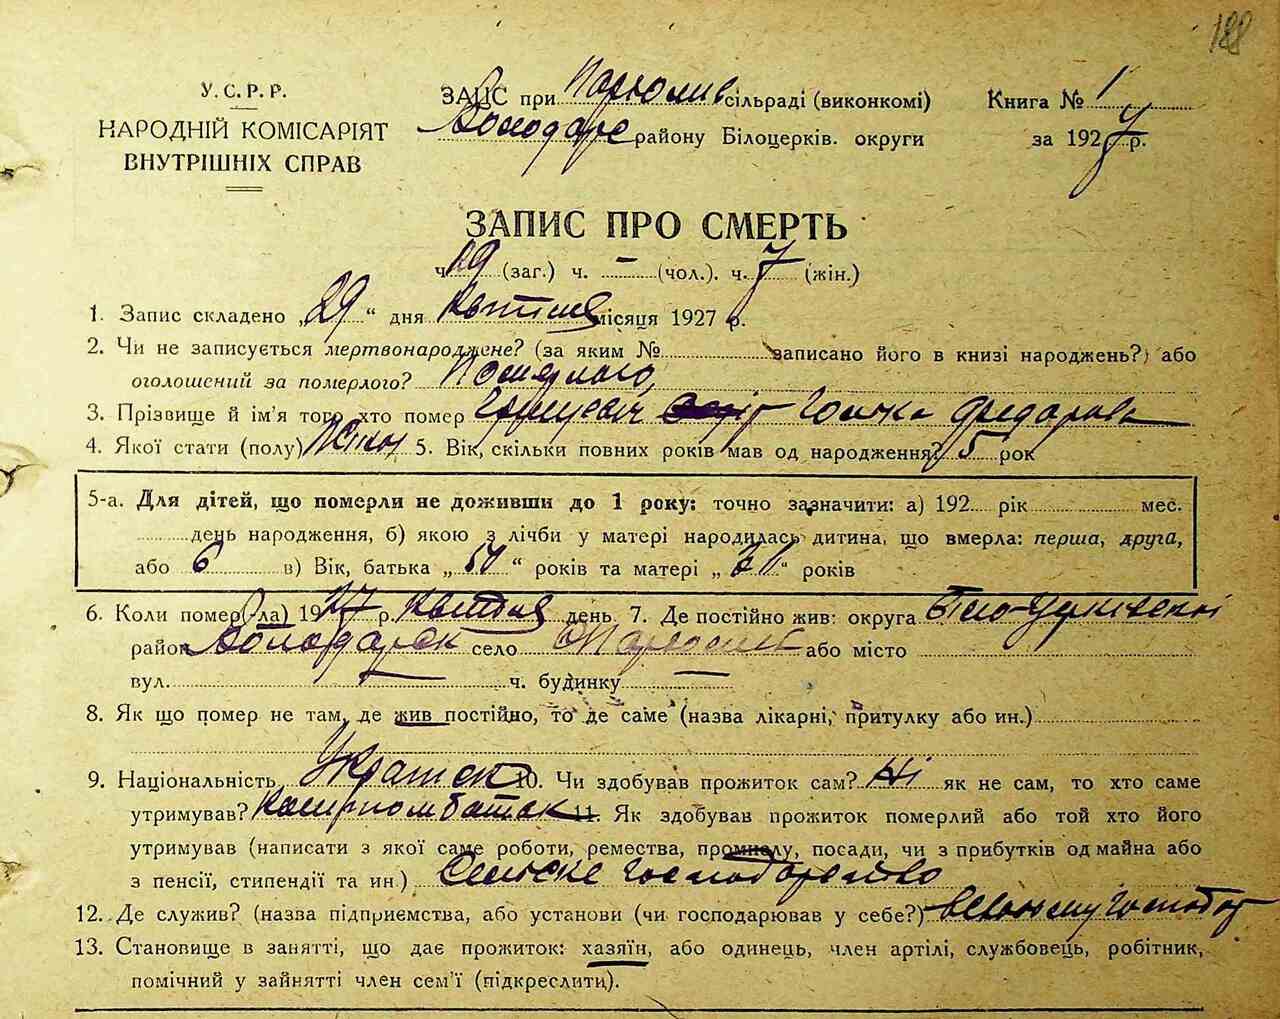 188
У. С. Р. Р.
НАРОДНІЙ КОМІСАРІЯТ
ВНУТРІШНІХ СПРАВ
ЗАПС при сільраді (виконкомі)
Володарс району Білоцерків. округи
Книга № 1
за 1927 р.
ЗАПИС ПРО СМЕРТЬ
ч. 19 (заг.) ч. – (чол.). ч. 7 (жін.)
1. Запис складено „29“ дня Квітня місяця 1927 р.
2. Чи не записується мертвонароджене? (за яким № записано його в книзі народжень?) або
оголошений за померлого? Померлого,
3. Прізвище й ім'я того, хто помер
4. Якої статі (полу) Жіноч 5. Вік, скільки повних років мав од народження? 5 рок
5-а. Для дітей, що померли не доживши до 1 року: точно зазначити: а) 192 рік мес.
день народження, б) якою з лічби у матері народилась дитина, що вмерла: перша, друга,
або 6 в) Вік, батька „ “ років та матері „ “ років
6. Коли помер(ла) 1927 р. Квітня день 7. Де постійно жив: округа Біло-Церківській
район Володарск село або місто
вул. – ч. будинку –
8. Як що помер не там, де жив постійно, то де саме (назва лікарні, притулку або ин.)
9. Національність Украінск 10. Чи здобував прожиток сам? Ні як не сам, то хто саме
утримував? батьк 11. Як здобував прожиток померлий або той хто його
утримував (написати з якої саме роботи, ремества, промислу, посади, чи з прибутків од майна або
з пенсії, стипендії та ин.) Сельске господарство
12. Де служив? (назва підприємства, або установи (чи господарював у себе?) всвоному господар
13. Становище в занятті, що дає прожиток: хазяїн, або одинець, член артілі, службовець, робітник,
помічний у зайнятті член сем'ї (підкреслити).